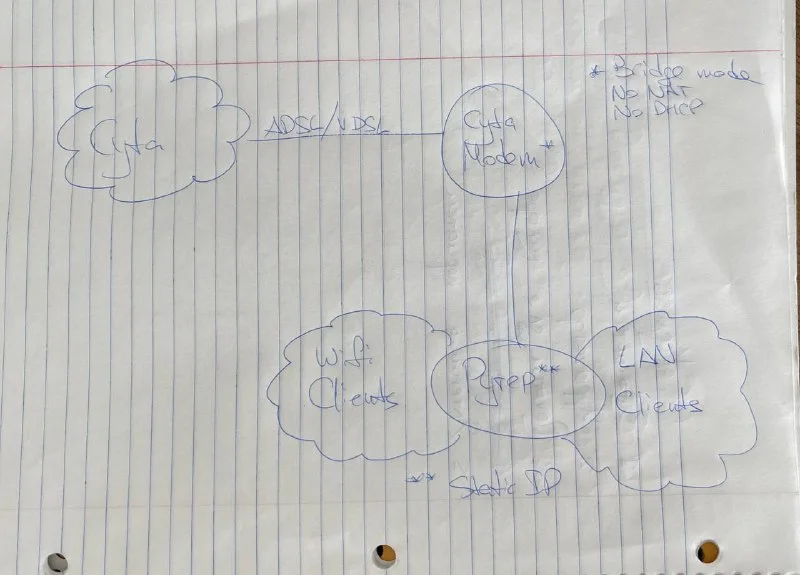 Cyta
ADSL/VDSL
Cyta
Modem*
* Bridge mode
No NAT
No DHCP
Wifi
Clients
Pyrep**
LAN
Clients
** Static IP